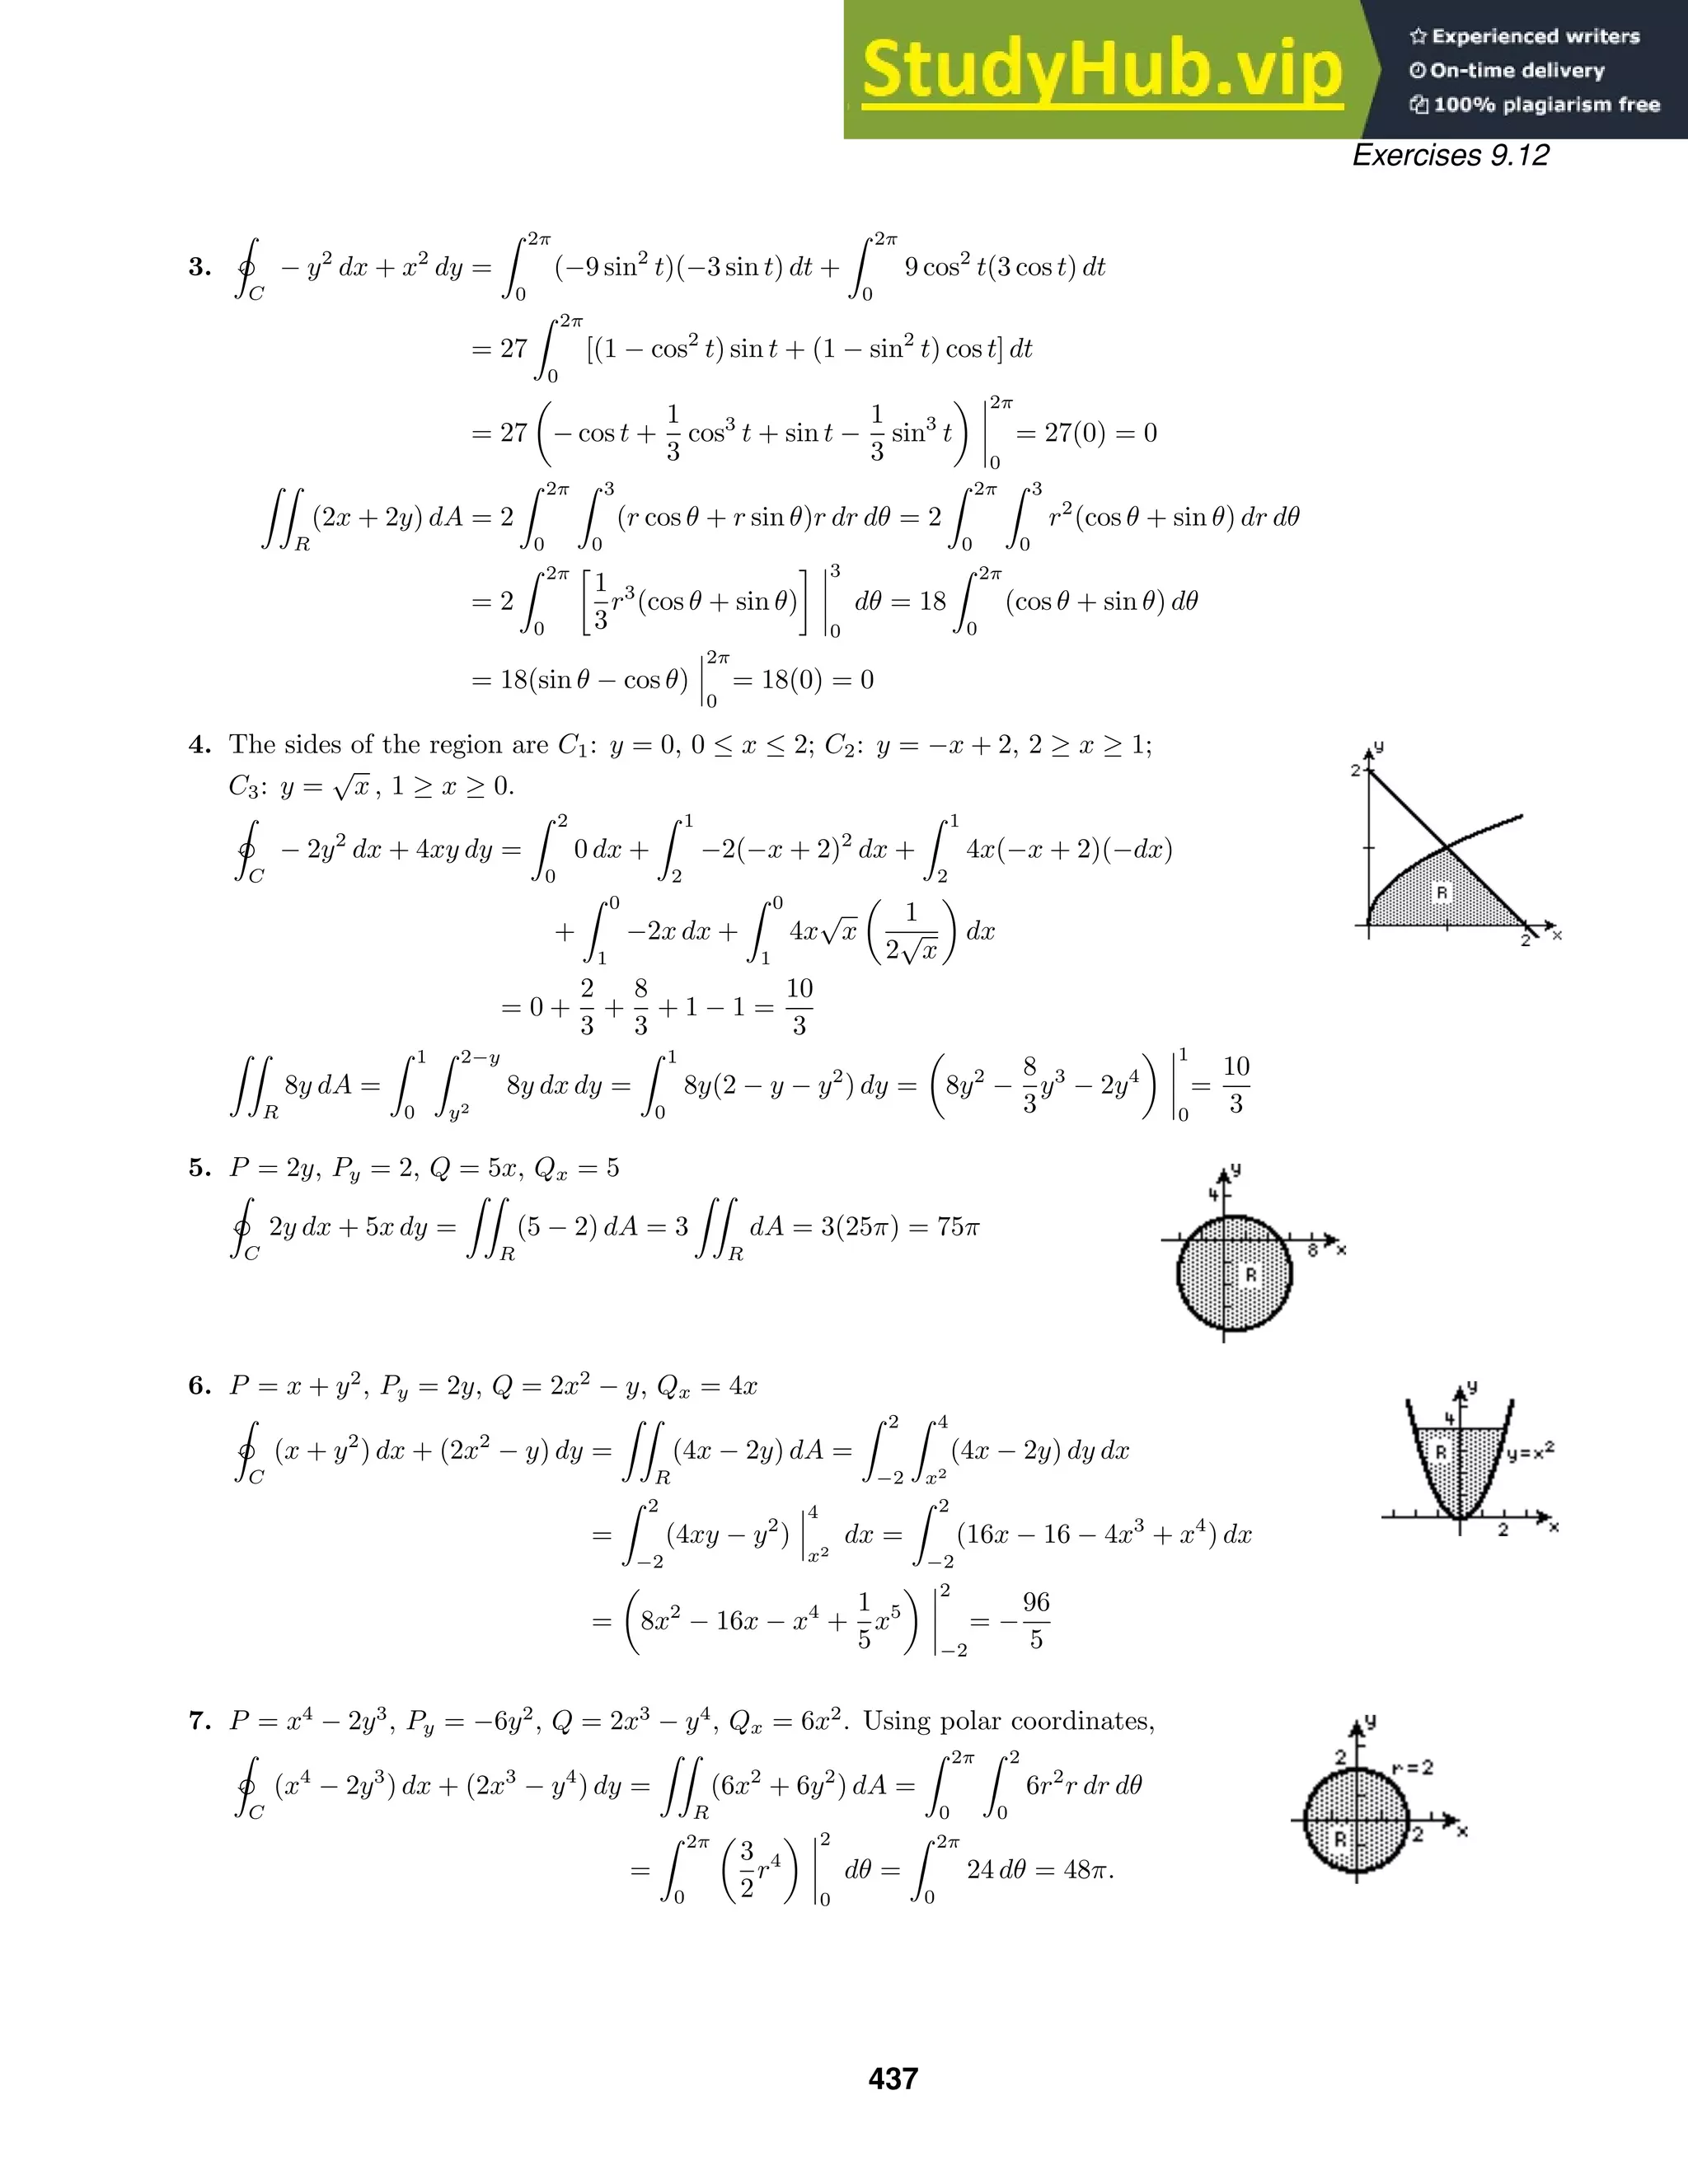 StudyHub.vip
☆ Experienced writers
On-time delivery
100% plagiarism free
Exercises 9.12
3. ∮_C − y² dx + x² dy = ∫_0^{2π} (−9 sin² t)(−3 sin t) dt + ∫_0^{2π} 9 cos² t(3 cos t) dt
= 27 ∫_0^{2π} [(1 − cos² t) sin t + (1 − sin² t) cos t] dt
= 27 (− cos t + 1/3 cos³ t + sin t − 1/3 sin³ t) |_0^{2π} = 27(0) = 0
∬_R (2x + 2y) dA = 2 ∫_0^{2π} ∫_0^3 (r cos θ + r sin θ)r dr dθ = 2 ∫_0^{2π} ∫_0^3 r²(cos θ + sin θ) dr dθ
= 2 ∫_0^{2π} [1/3 r³(cos θ + sin θ)] |_0^3 dθ = 18 ∫_0^{2π} (cos θ + sin θ) dθ
= 18(sin θ − cos θ) |_0^{2π} = 18(0) = 0
4. The sides of the region are C₁: y = 0, 0 ≤ x ≤ 2; C₂: y = −x + 2, 2 ≥ x ≥ 1;
C₃: y = √x , 1 ≥ x ≥ 0.
∮_C − 2y² dx + 4xy dy = ∫_0^2 0 dx + ∫_2^1 −2(−x + 2)² dx + ∫_2^1 4x(−x + 2)(−dx)
+ ∫_1^0 −2x dx + ∫_1^0 4x√x (1/(2√x)) dx
= 0 + 2/3 + 8/3 + 1 − 1 = 10/3
∬_R 8y dA = ∫_0^1 ∫_{y²}^{2−y} 8y dx dy = ∫_0^1 8y(2 − y − y²) dy = (8y² − 8/3 y³ − 2y⁴) |_0^1 = 10/3
y
2
R
2
x
5. P = 2y, P_y = 2, Q = 5x, Q_x = 5
∮_C 2y dx + 5x dy = ∬_R (5 − 2) dA = 3 ∬_R dA = 3(25π) = 75π
y
4
8
x
R
6. P = x + y², P_y = 2y, Q = 2x² − y, Q_x = 4x
∮_C (x + y²) dx + (2x² − y) dy = ∬_R (4x − 2y) dA = ∫_{−2}^2 ∫_{x²}^4 (4x − 2y) dy dx
= ∫_{−2}^2 (4xy − y²) |_{x²}^4 dx = ∫_{−2}^2 (16x − 16 − 4x³ + x⁴) dx
= (8x² − 16x − x⁴ + 1/5 x⁵) |_{−2}^2 = − 96/5
y
4
R
y=x²
2
x
7. P = x⁴ − 2y³, P_y = −6y², Q = 2x³ − y⁴, Q_x = 6x². Using polar coordinates,
∮_C (x⁴ − 2y³) dx + (2x³ − y⁴) dy = ∬_R (6x² + 6y²) dA = ∫_0^{2π} ∫_0^2 6r²r dr dθ
= ∫_0^{2π} (3/2 r⁴) |_0^2 dθ = ∫_0^{2π} 24 dθ = 48π.
y
2
r=2
R
2
x
437